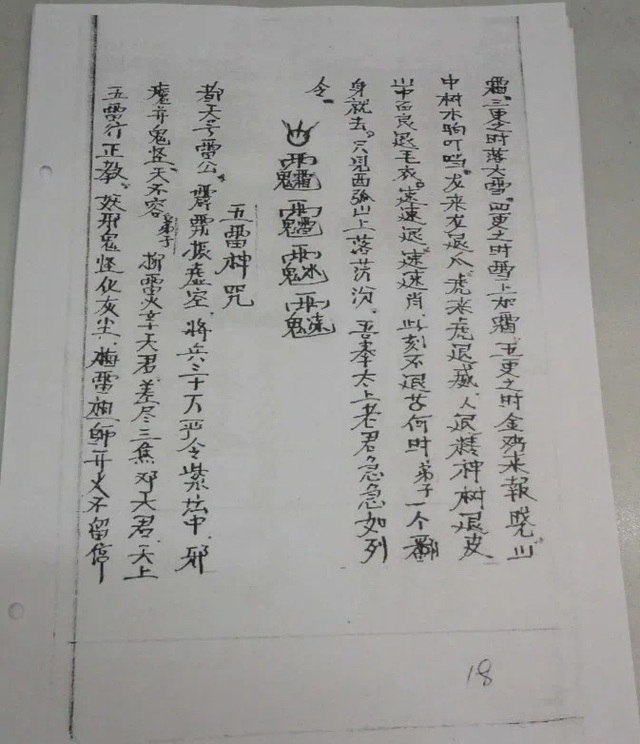 霜。三更之时落大雪。四更之时雪上加霜。五更之时金鸡来報曉。山
中树木响叮当。龙来龙退爪。虎来虎退威。人退精神树退皮
山中百良退毛衣。速速退。速速肖。此刻不退等何时。弟子一个翻
身就去。只見西弥山上落芬汾。吾奉太上老君急急如列
令。
五雷神咒
都天号雷公。霹雳振虚空。将兵三十万严令紫坛中。邪
魔并鬼怪。天不容。弟子 掷雷火辛天君。差尽三焦邓天君。天上
五雷行正教。妖邪鬼怪化灰尘。梅雷祖師开火不留停
18